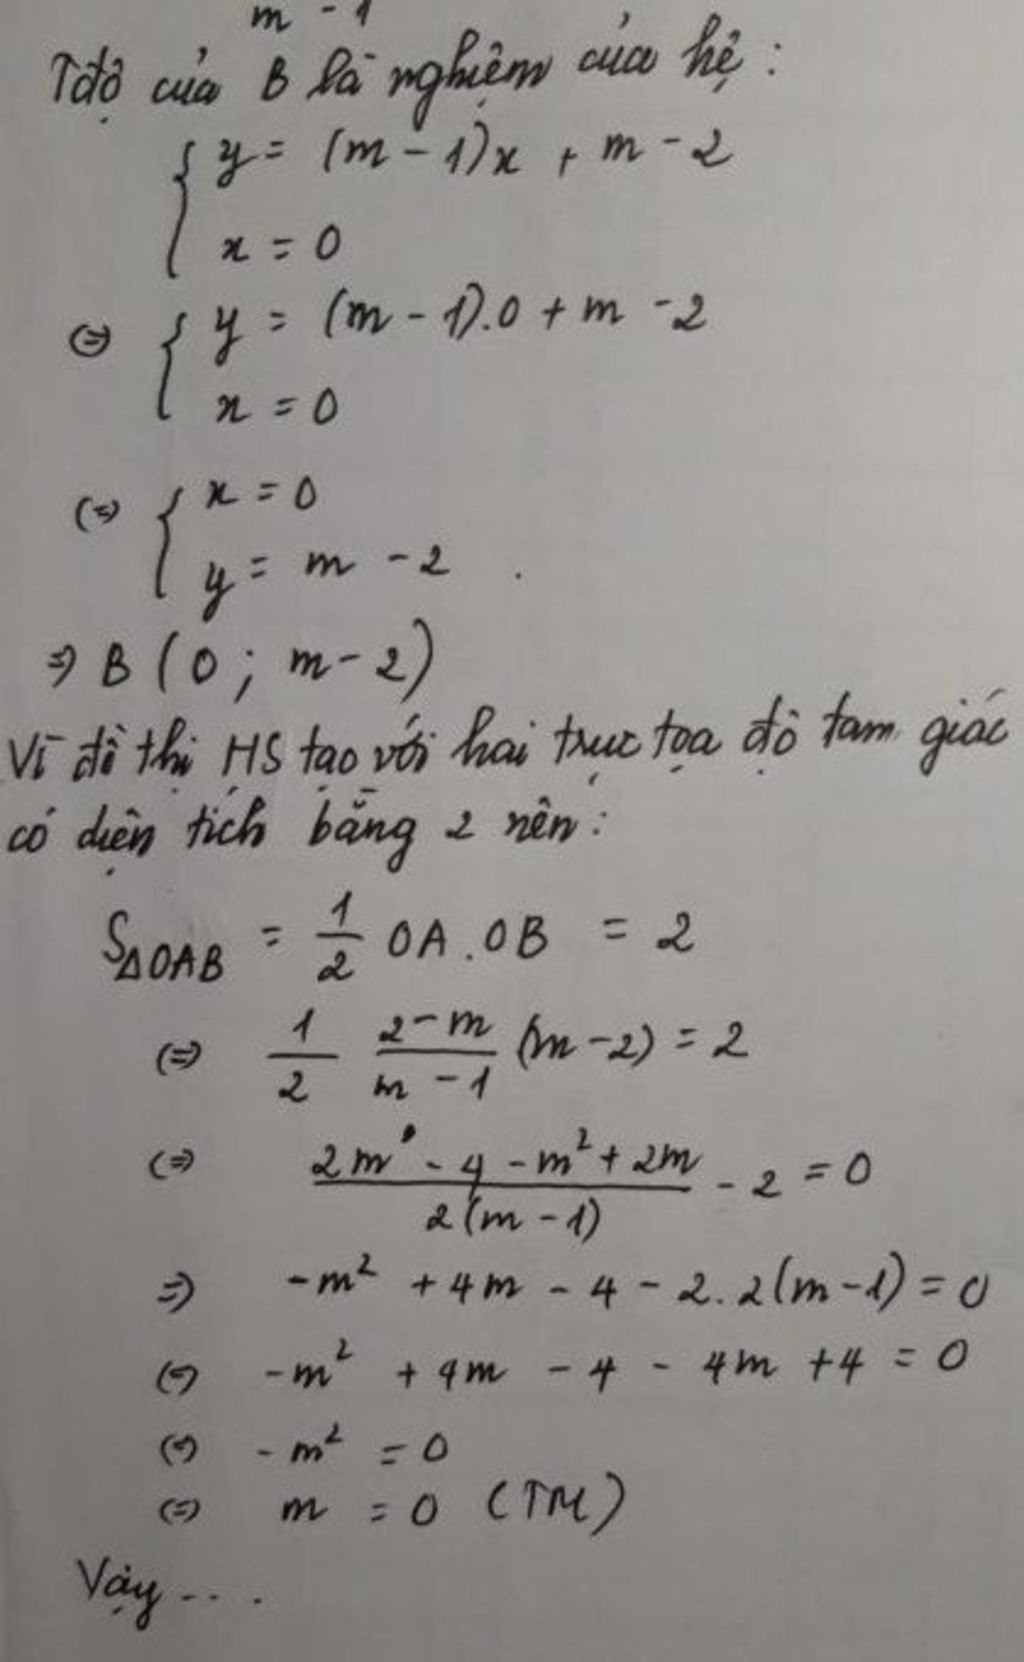 m - 1
Tđộ của B là nghiệm của hệ :
{ y = (m - 1)x + m - 2
x = 0
(=) { y = (m - 1).0 + m - 2
x = 0
(=) { x = 0
y = m - 2 .
=) B (0 ; m - 2)
Vì đồ thị HS tạo với hai trục tọa độ tam giác
có diện tích bằng 2 nên :
S△OAB = 1/2 OA . OB = 2
(=) 1/2 (2 - m)/(m - 1) (m - 2) = 2
(=) (2m - 4 - m² + 2m)/(2(m - 1)) - 2 = 0
=) -m² + 4m - 4 - 2.2(m - 1) = 0
(=) -m² + 4m - 4 - 4m + 4 = 0
(=) -m² = 0
(=) m = 0 (TM)
Vậy ... .